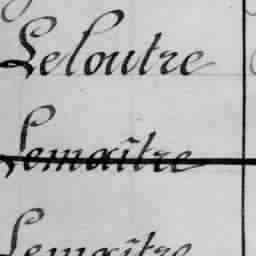 Leloutre
Lemaître
Lemaître